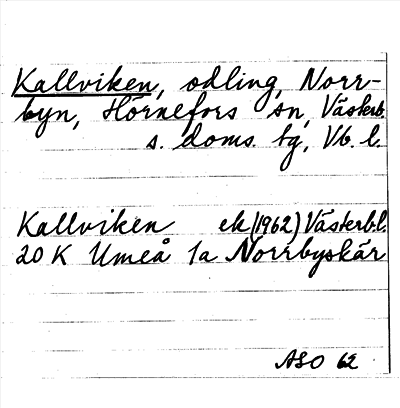 Kallviken, odling, Norr-
byn, Hörnefors sn, Västerb.
s. doms. tg, Vb. l.
Kallviken ek (1962) Västerb.l.
20 K Umeå 1a Norrbyskär
ASO 62